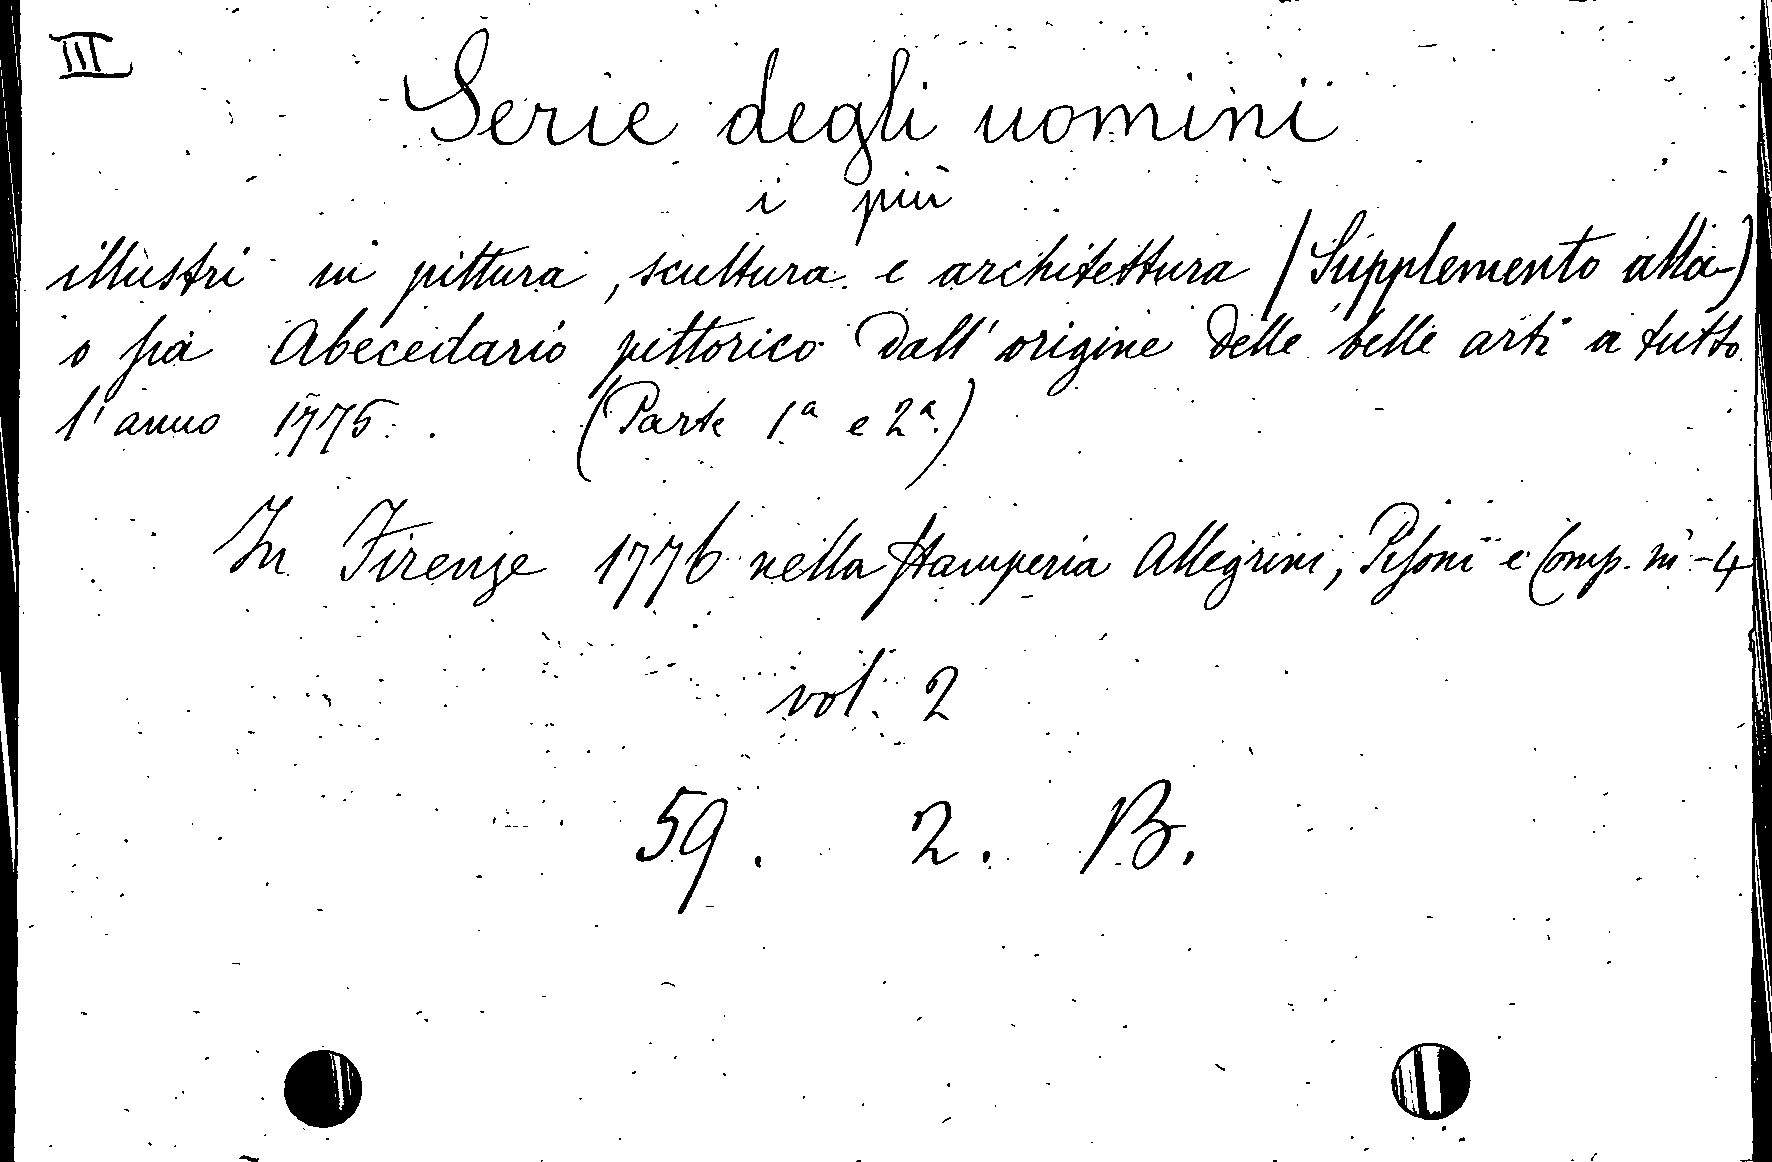 III
Serie degli uomini
i più
illustri in pittura, scultura e architettura (Supplemento alla-)
o sia Abecedario pittorico dall' origine delle belle arti a tutto
l' anno 1775. (Parte 1a e 2a.)
In Firenze 1776 nella Stamperia Allegrini, Pisoni e Comp. in-4
vol. 2
59. 2. B.